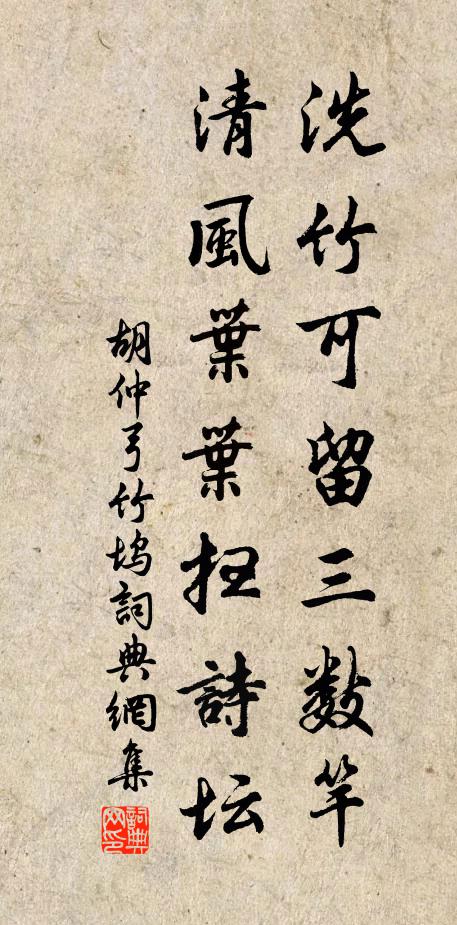 洗竹可留三数竿
清風葉葉扫詩坛
胡仲弓竹坞詞典網集
詞典网印